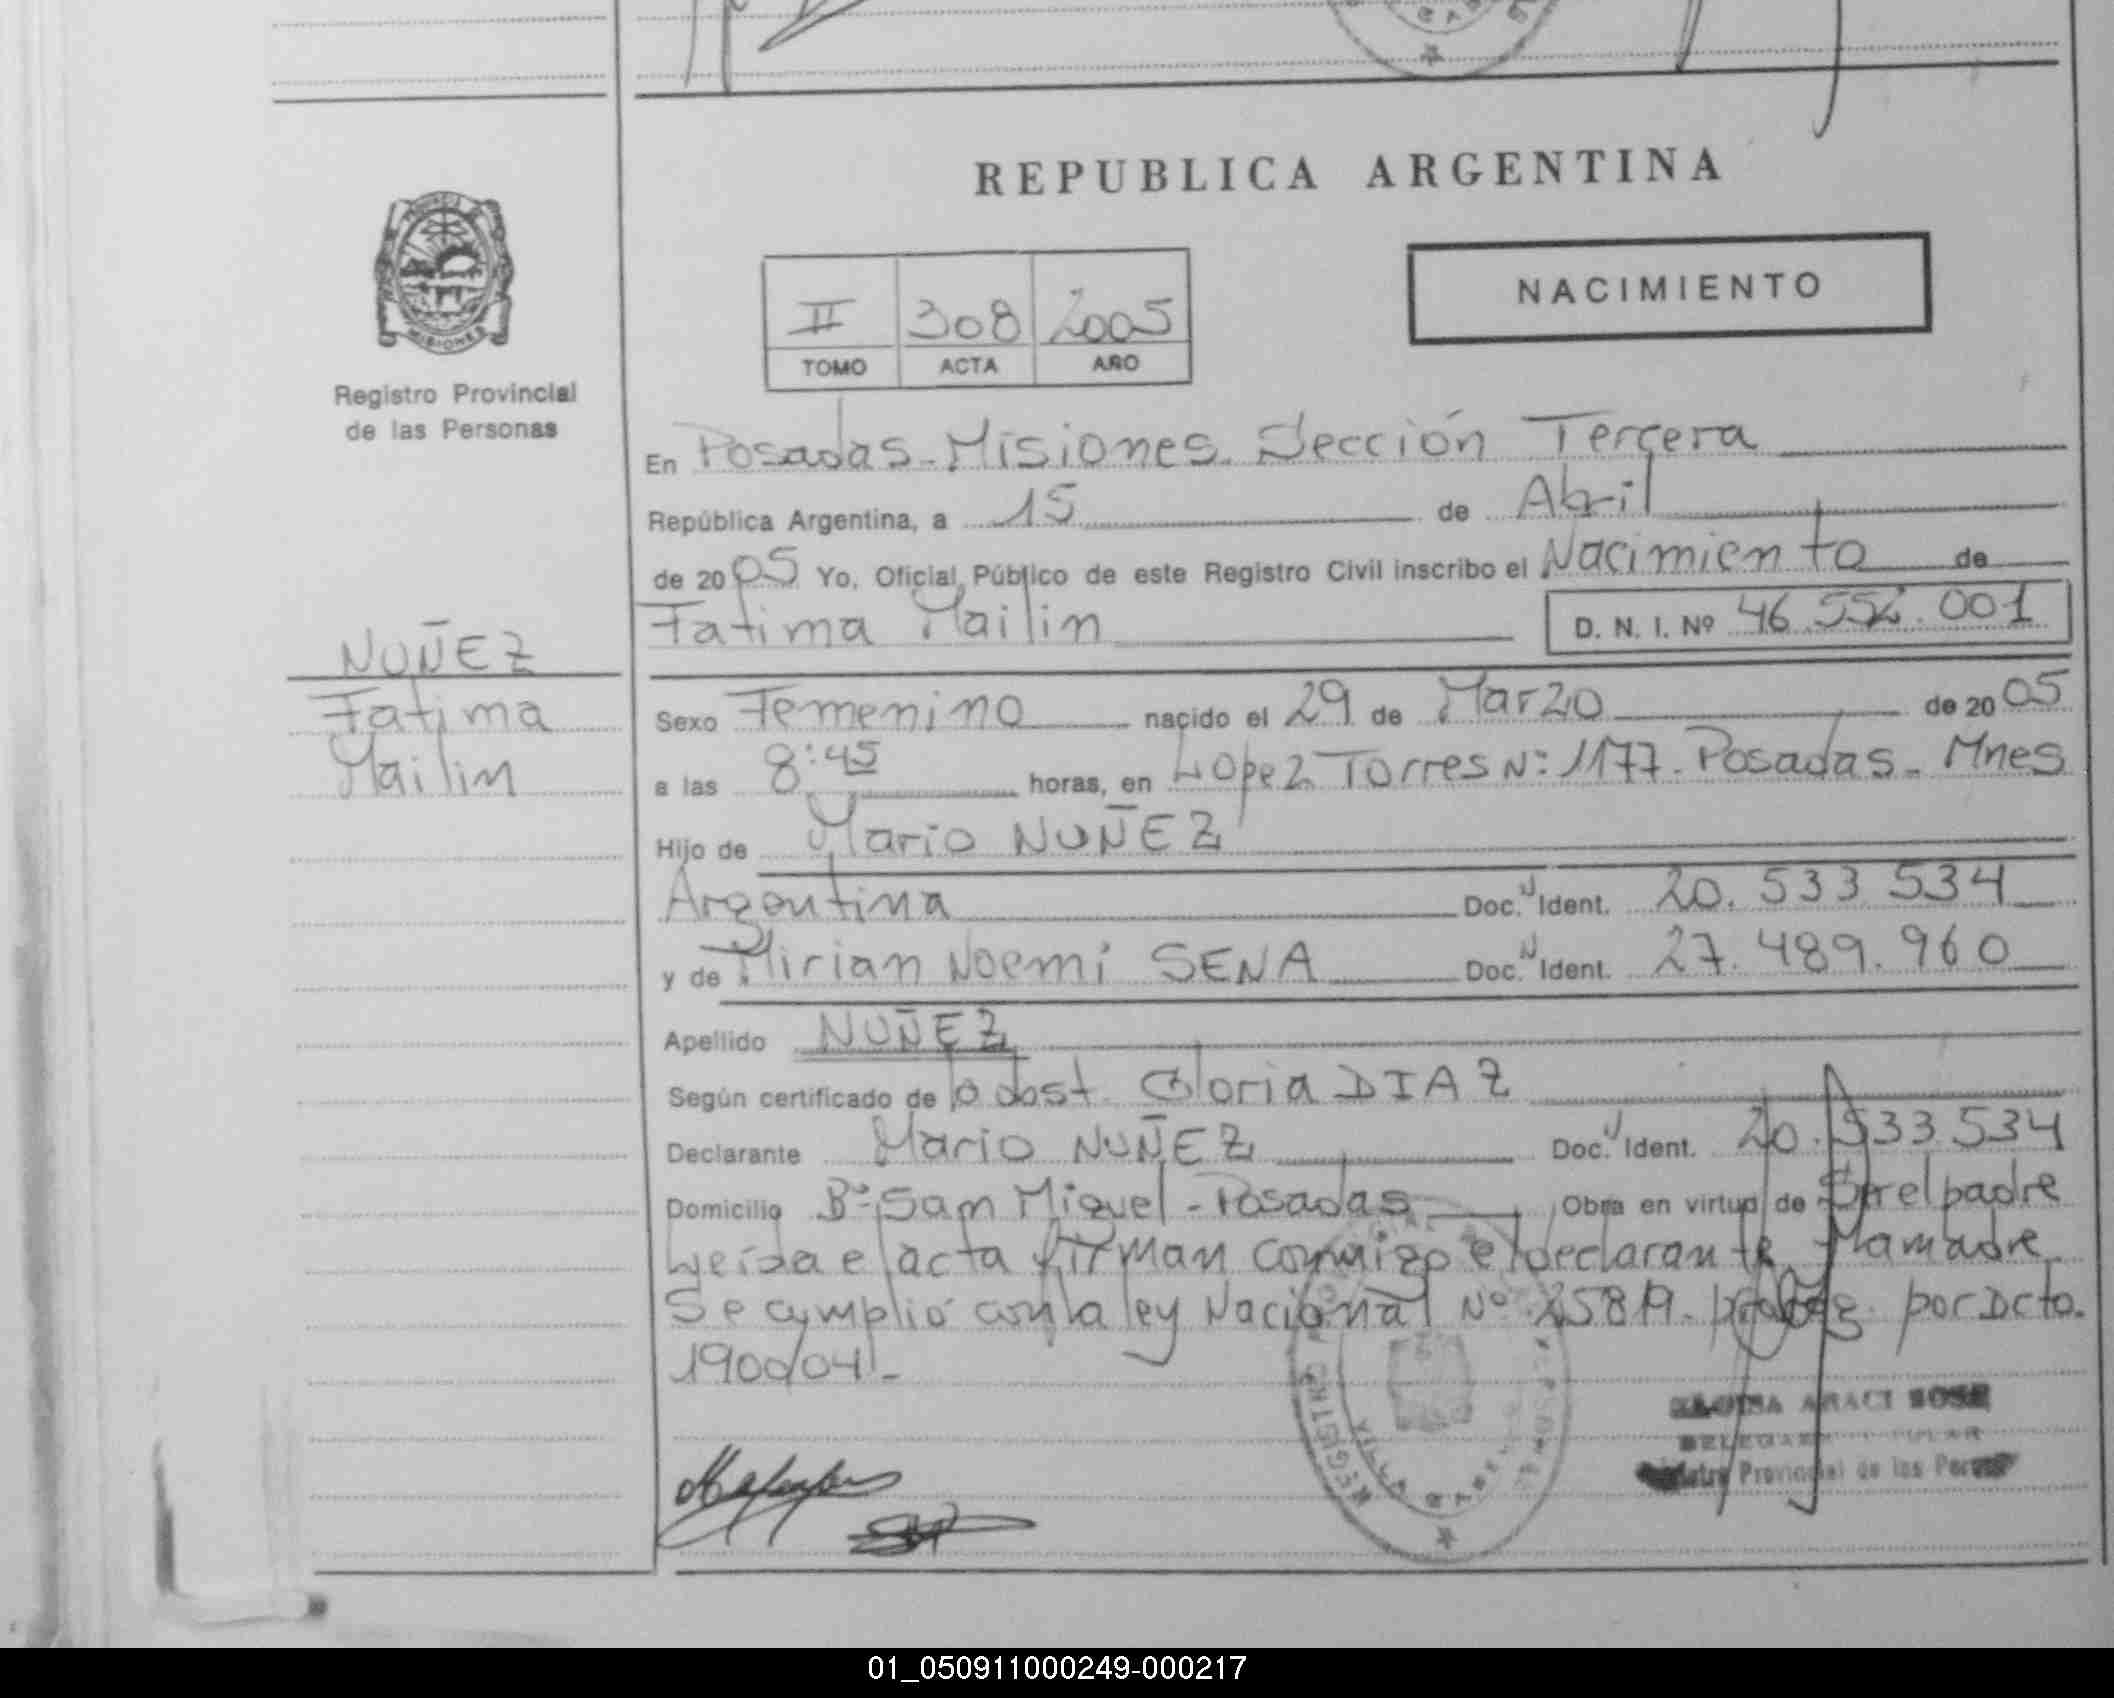 REPUBLICA ARGENTINA
NACIMIENTO
II 308 2005
TOMO ACTA AÑO
MISIONES
Registro Provincial
de las Personas
NUÑEZ
Fatima
Mailin
En Posadas - Misiones. Sección Tercera
República Argentina, a 15 de Abril
de 2005 Yo, Oficial Público de este Registro Civil inscribo el Nacimiento de
Fatima Mailin D. N. I. Nº 46.552.001
Sexo Femenino nacido el 29 de Marzo de 2005
a las 8:45 horas, en Lopez Torres Nº: 1177 - Posadas - Mnes
Hijo de Mario NUÑEZ
Argentina Doc. N Ident. 20.533.534
y de Mirian Noemi SENA Doc. N Ident. 27.489.960
Apellido NUÑEZ
Según certificado de lo obst. Gloria DIAZ
Declarante Mario NUÑEZ Doc. Ident. 20.533.534
Domicilio Bº San Miguel - Posadas Obra en virtud de Ser el padre
Leída el acta firman conmigo el declarante y la madre
Se cumplió con la ley Nacional Nº 25819 - por Dcto.
1900/04 -
ARACI
Registro Provincial de las Personas
01_050911000249-000217